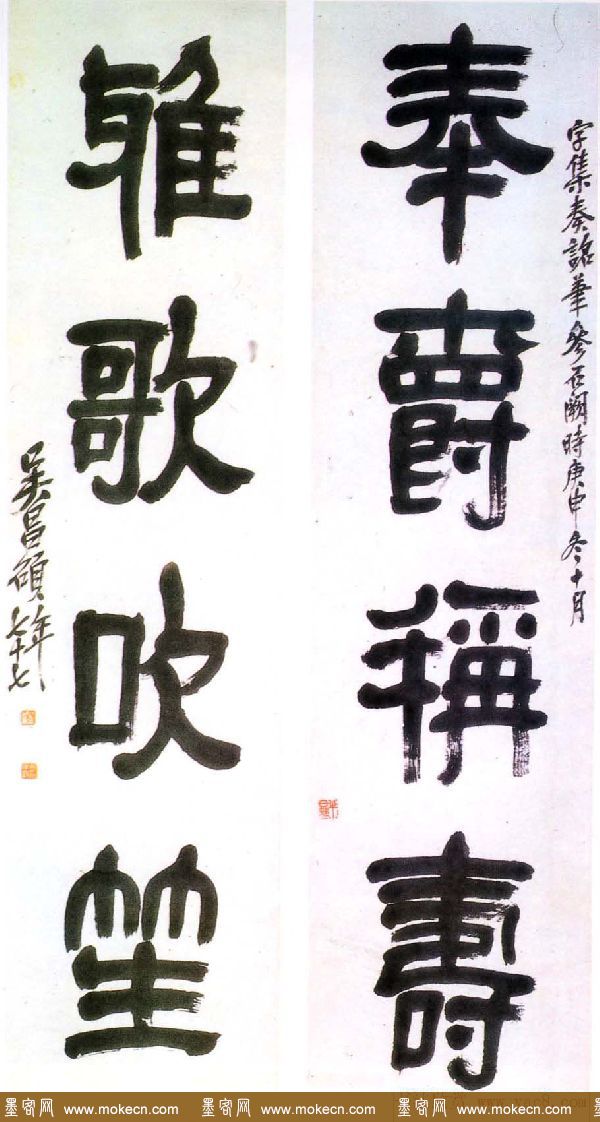 奉爵稱壽
雅歌吹笙
字集秦詔筆參石闕時庚申冬十月
吳昌碩年七十七
墨客网 www.mokecn.com 墨客网 www.mokecn.com 墨客网 www.mokecn.com